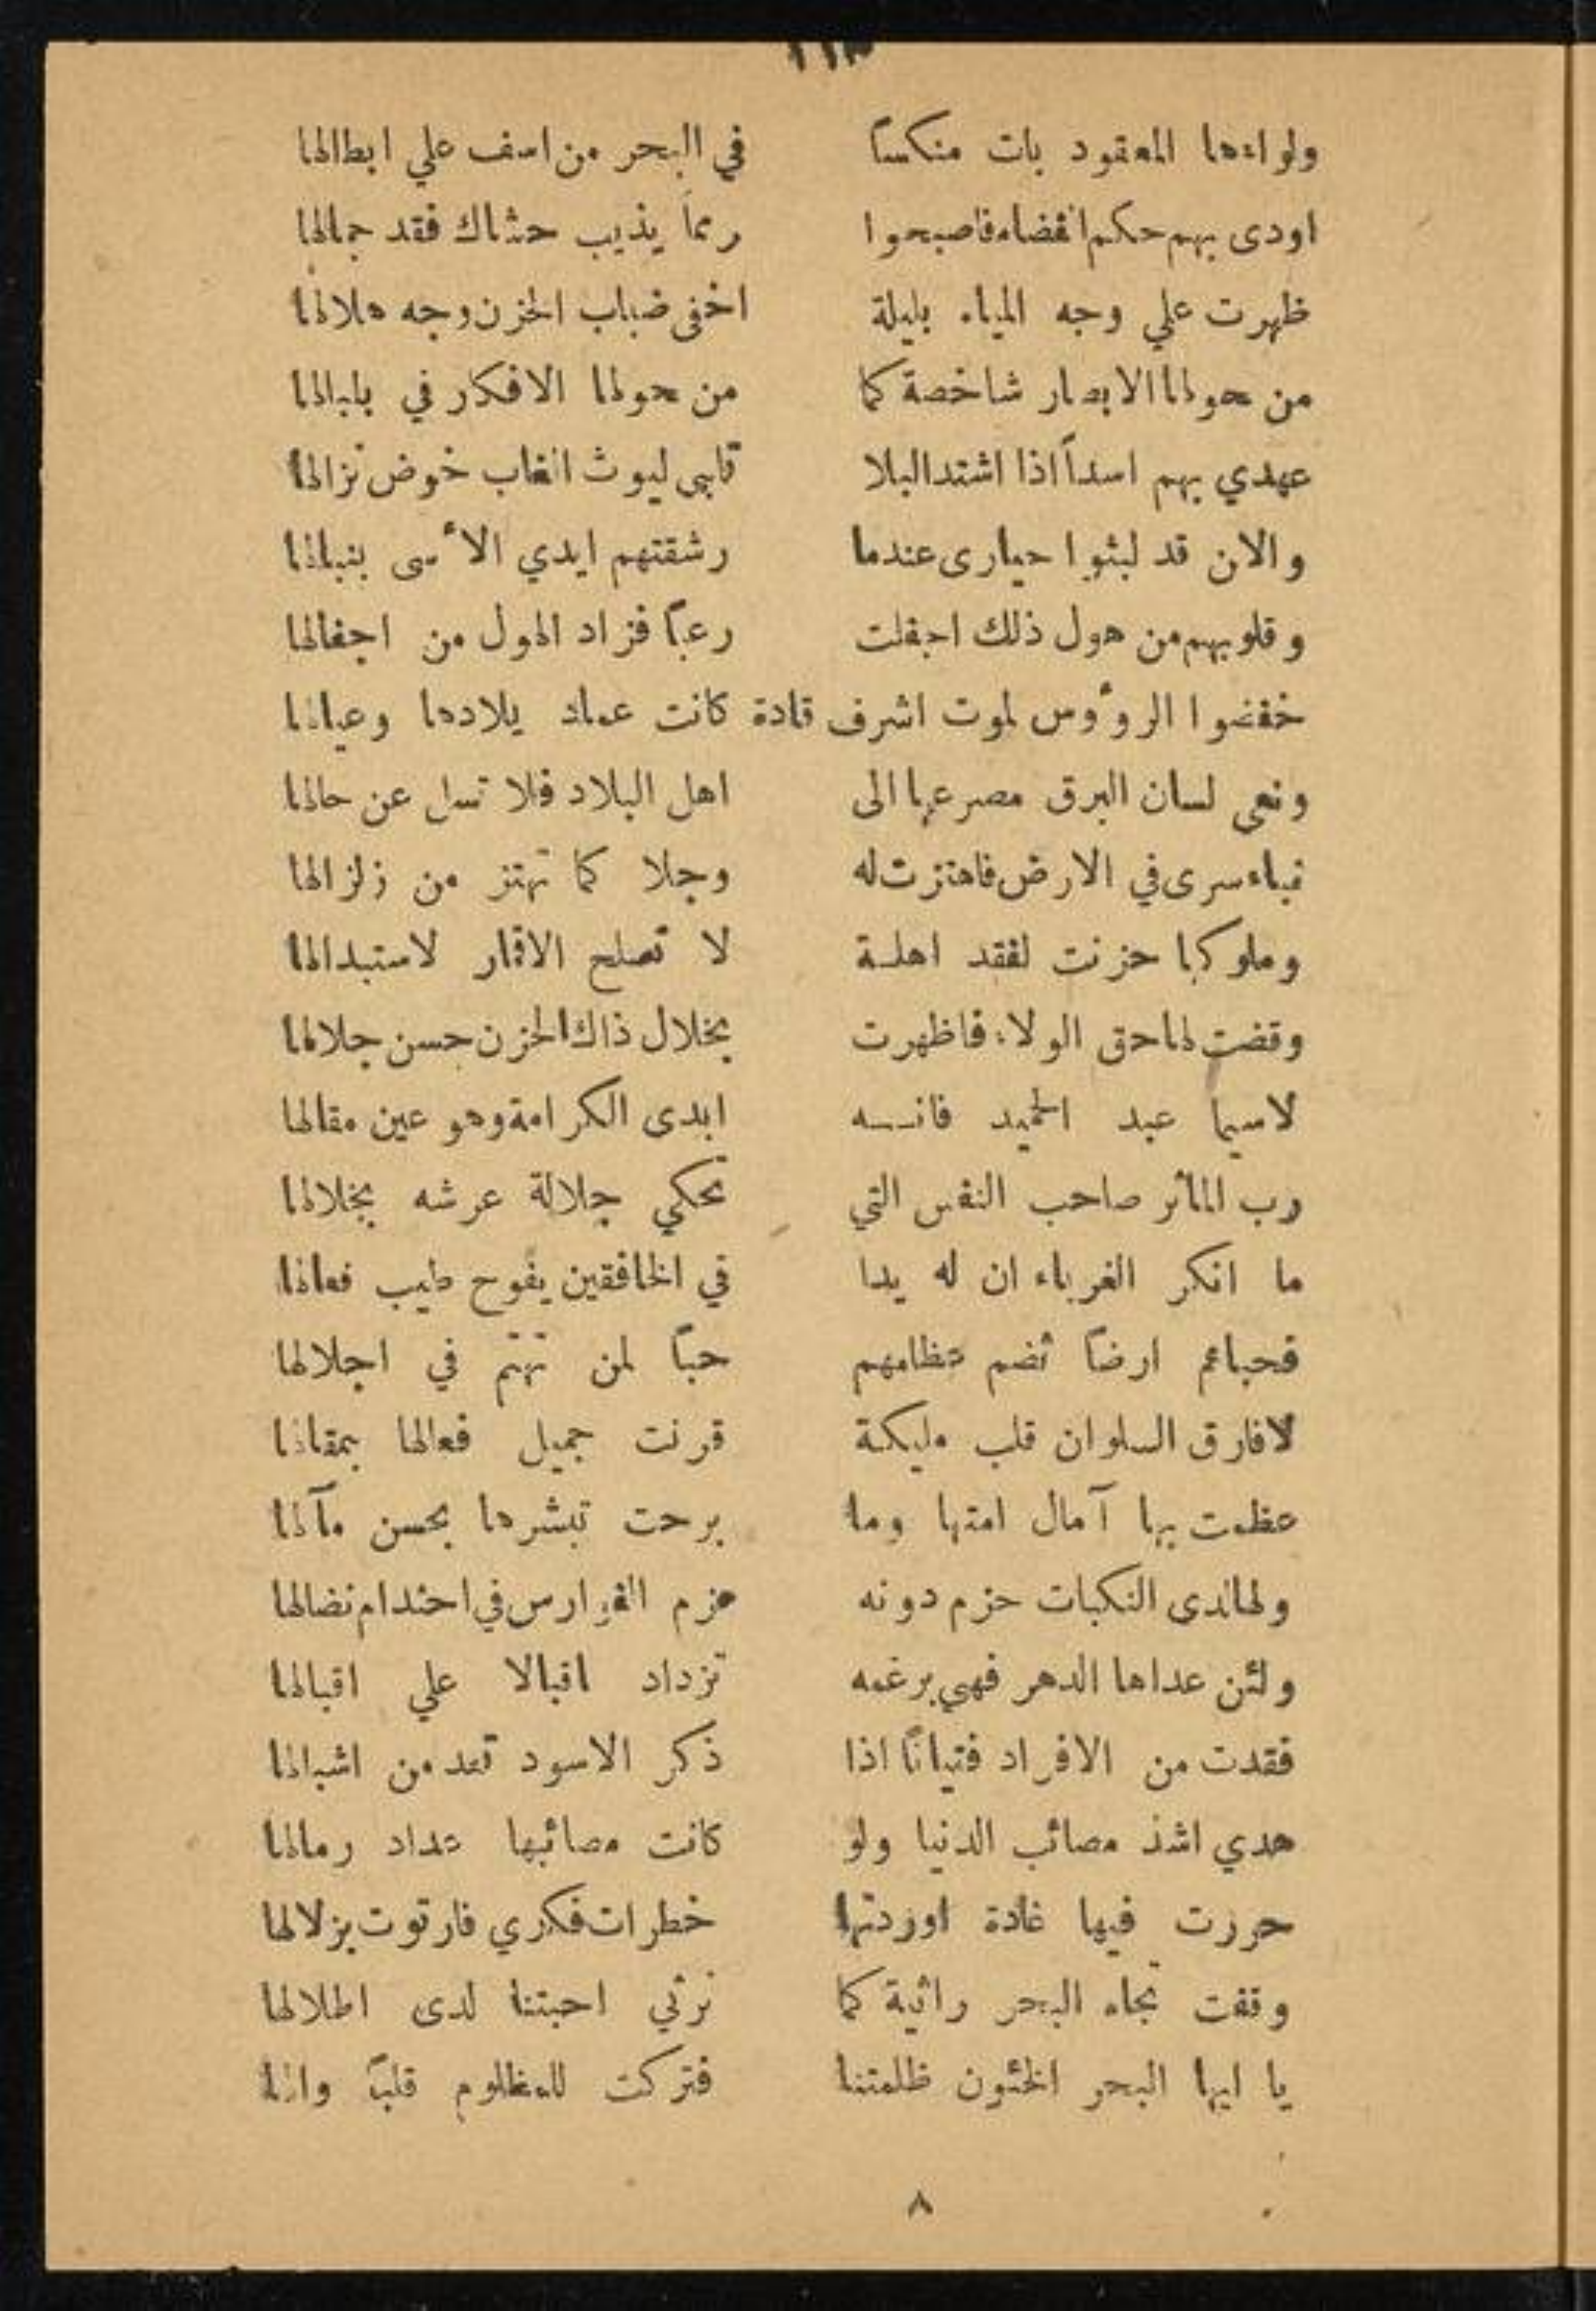 ١١٣
ولواءها المعقود بات منكساً في البحر من اسف علي ابطالها
اودى بهم حكم القضاء فاصبحوا رمماً يذيب حشاك فقد جمالها
ظهرت علي وجه المياه بليلة اخفى ضباب الحزن وجه هلالها
من حولها الابصار شاخصة كما من حولها الافكار في بلبالها
عهدي بهم اسداً اذا اشتد البلا تابى ليوث الغاب خوض نزالها
والان قد لبثوا حيارى عندما رشقتهم ايدي الأسى بنبالها
وقلوبهم من هول ذلك اجفلت رعباً فزاد الهول من اجفالها
خفضوا الروؤس لموت اشرف قادة كانت عماد بلادها وعيالها
ونعى لسان البرق مصرعها الى اهل البلاد فلا تسل عن حالها
نباء سرى في الارض فاهتزت له وجلا كما تهتز من زلزالها
وملوكها حزنت لفقد اهلة لا تصلح الاقمار لاستبدالها
وقضت لها حق الولاء فاظهرت بخلال ذاك الحزن حسن جلالها
لاسيما عبد الحميد فانه ابدى الكرامة وهو عين مقالها
رب المآثر صاحب النفس التي تحكي جلالة عرشه بخلالها
ما انكر الغرباء ان له يدا في الخافقين يفوح طيب فعالها
فحباهم ارضاً تضم عظامهم حباً لمن تهتم في اجلالها
لافارق السلوان قلب مليكة قرنت جميل فعالها بمقالها
عظمت بها آمال امتها وما برحت تبشرها بحسن مآلها
ولها لدى النكبات حزم دونه عزم الفوارس في احتدام نضالها
ولئن عداها الدهر فهي برغمه تزداد اقبالا علي اقبالها
فقدت من الافراد فتياناً اذا ذكر الاسود تعد من اشبالها
هدي اشد مصائب الدنيا ولو كانت مصائبها عداد رمالها
حررت فيها غادة اوردتها خطرات فكري فارتوت بزلالها
وقفت تجاه البحر راثية كما نرثي احبتنا لدى اطلالها
يا ايها البحر الخئون ظلمتنا فتركت للمظلوم قلباً والها
٨